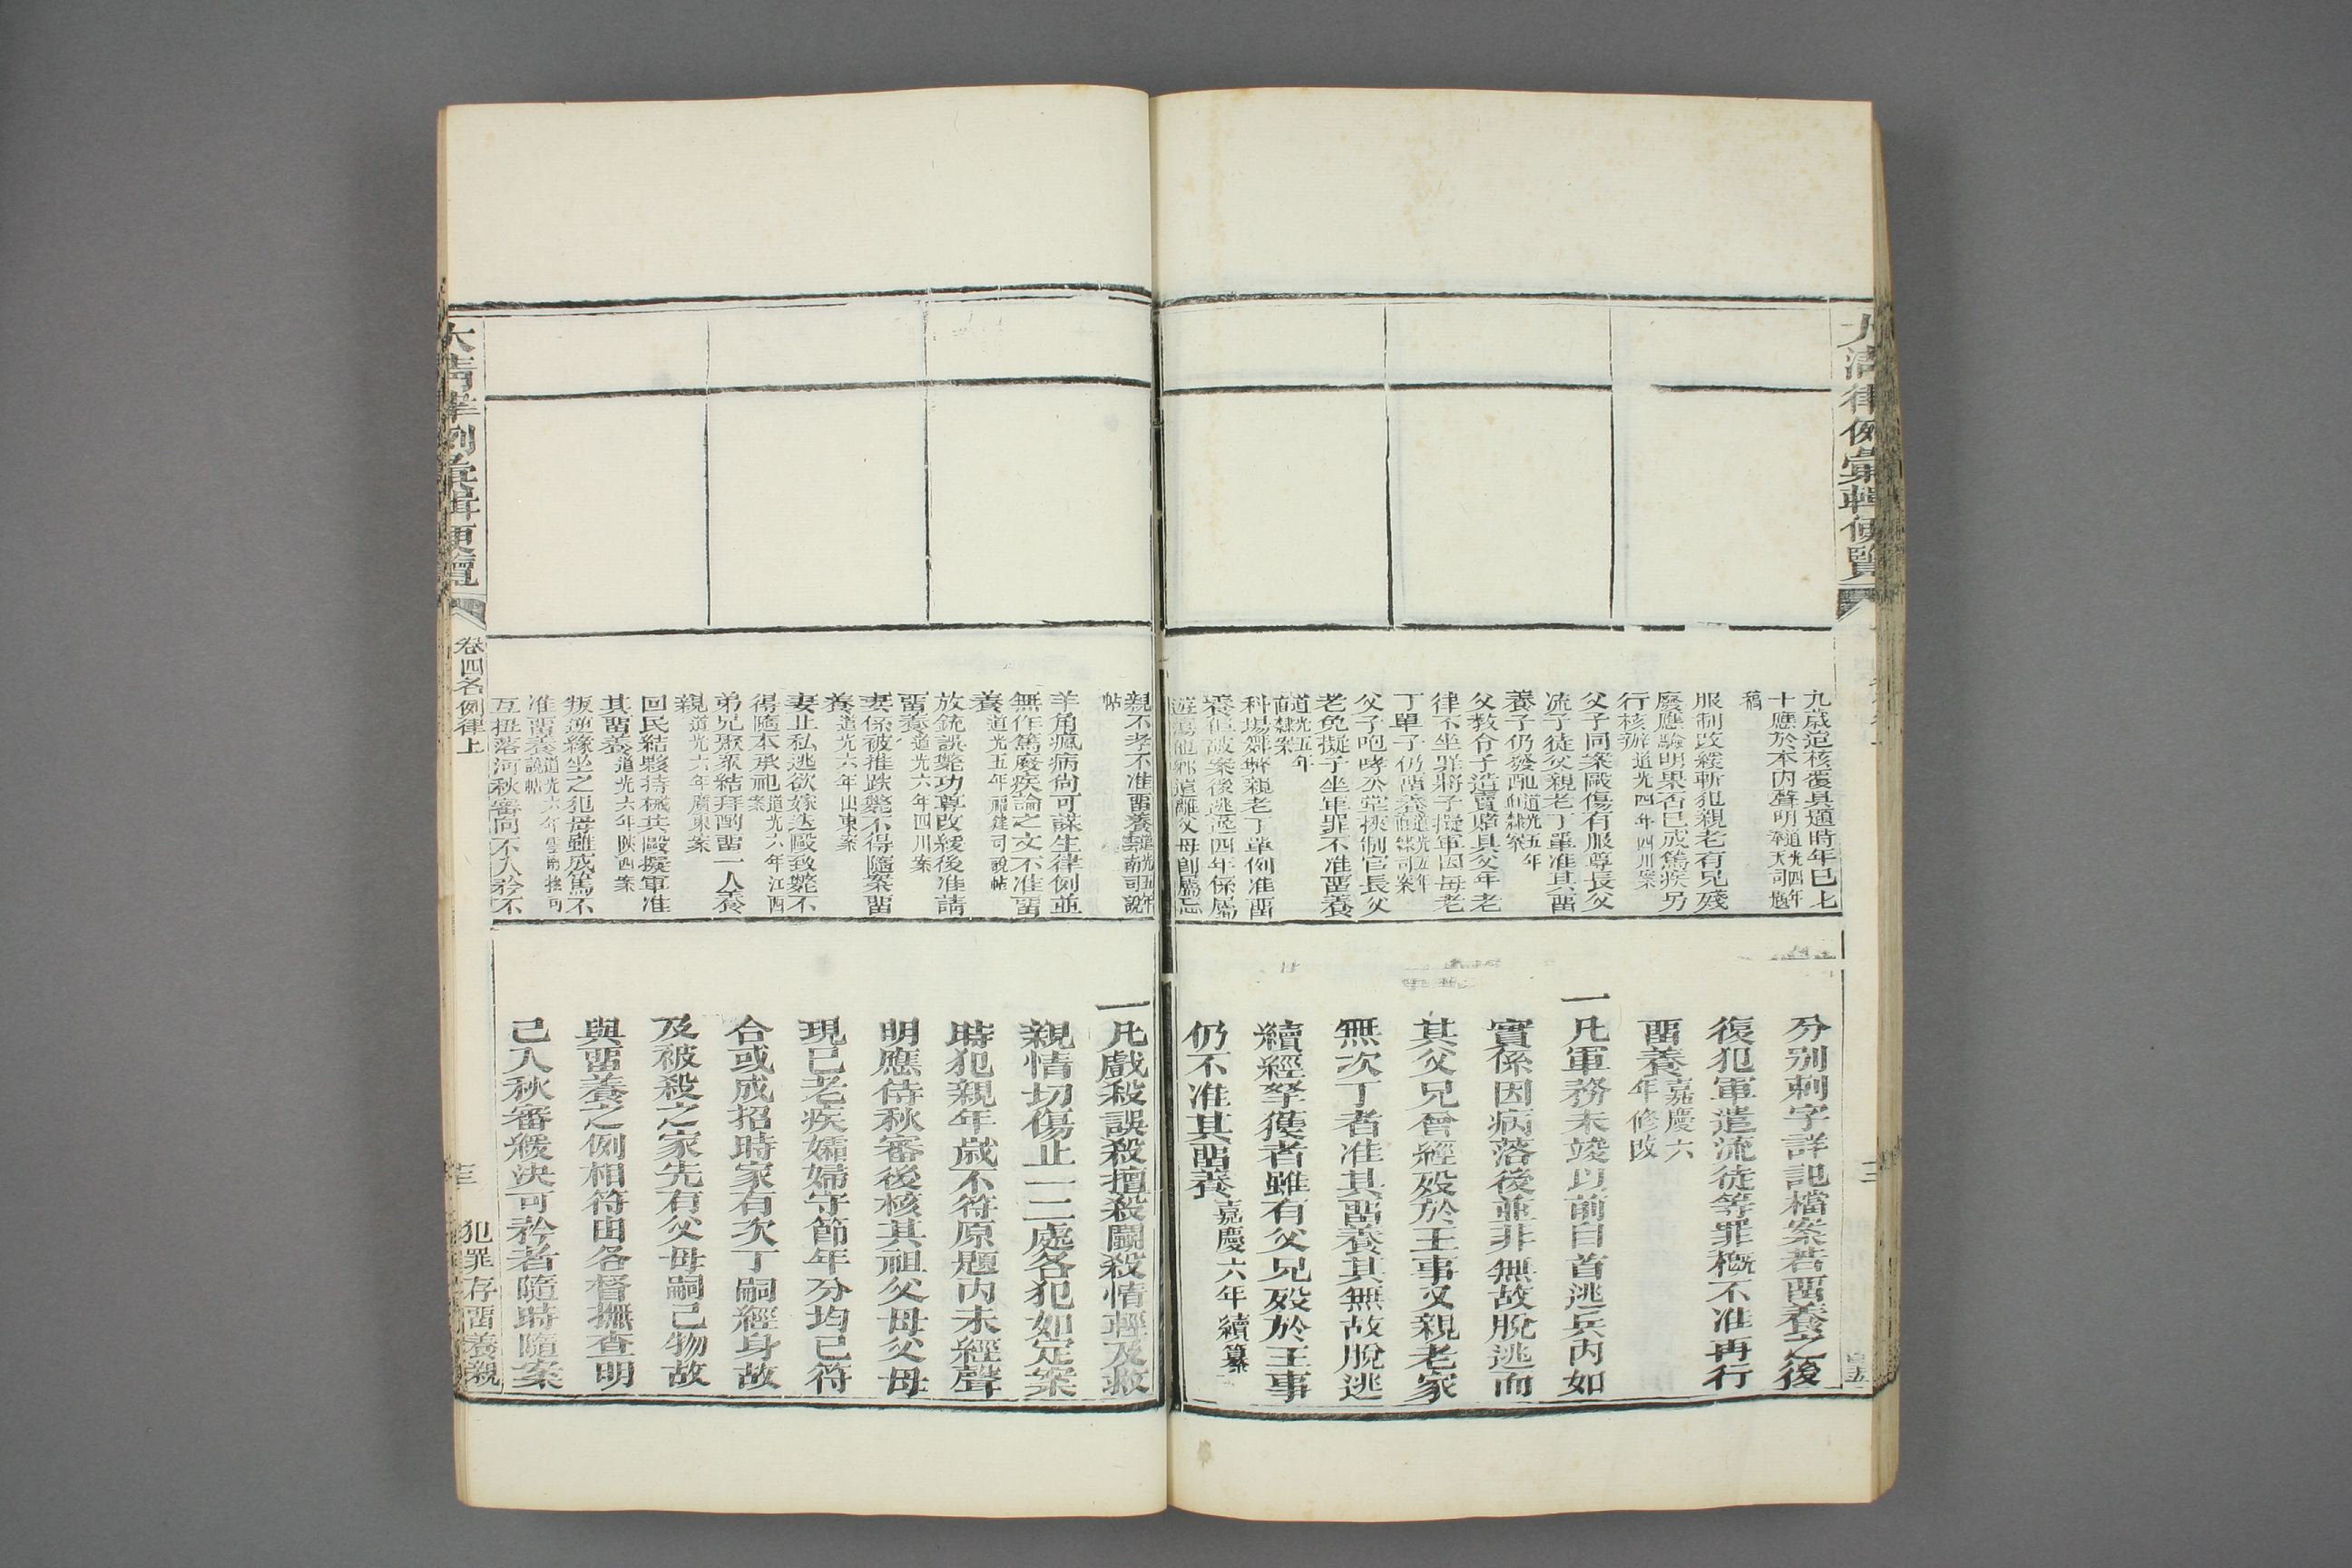 大清律例彙輯便覽
九歲迨核覆具題時年已七
十應於本內聲明道光四年奉天司題
稿
服制改緩斬犯親老有兄殘
廢應驗明果否已成篤疾另
行核辦道光四年四川案
父子同案毆傷有服尊長父
流子徒父親老丁單准其畱
養子仍發配道光五年直隸案
父教令子造賣賭具父年老
律不坐罪將子擬軍因母老
丁單子仍畱養道光五年直隸司案
父子咆哮公堂挾制官長父
老免擬子坐軍罪不准畱養
道光五年直隸案
科場舞弊親老丁單例准畱
養但破案後逃逸四年係屬
遊蕩他鄉遠離父母創屬忘
親不孝不准畱養道光五年雲南司說
帖
羊角瘋病尚可謀生律例並
無作篤廢疾論之文不准畱
養道光五年福建司說帖
放銃誤斃功尊改緩後准請
畱養道光六年四川案
妻係被推跌斃不得隨案畱
養道光六年山東案
妻止私逃欲嫁送毆致斃不
得隨本承祀道光六年江西案
弟兄聚眾結拜酌畱一人養
親道光六年廣東案
回民結夥持械共毆擬軍准
其畱養道光六年陝西案
叛逆緣坐之犯母雖成篤不
准畱養道光六年雲南撫司說帖
互扭落河秋審向不入矜不
分別刺字詳記檔案若畱養之後
復犯軍遣流徒等罪概不准再行
畱養嘉慶六年修改
一凡軍務未竣以前自首逃兵內如
實係因病落後並非無故脫逃而
其父兄曾經歿於王事又親老家
無次丁者准其畱養其無故脫逃
續經拏獲者雖有父兄歿於王事
仍不准其畱養嘉慶六年續纂
一凡戲殺誤殺擅殺鬬殺情輕及救
親情切傷止一二處各犯如定案
時犯親年歲不符原題內未經聲
明應侍秋審後核其祖父母父母
現已老疾孀婦守節年分均已符
合或成招時家有次丁嗣經身故
及被殺之家先有父母嗣已物故
與畱養之例相符由各督撫查明
已入秋審緩決可矜者隨時隨案
大清律例彙輯便覽
卷四名例律上
犯罪存畱養親